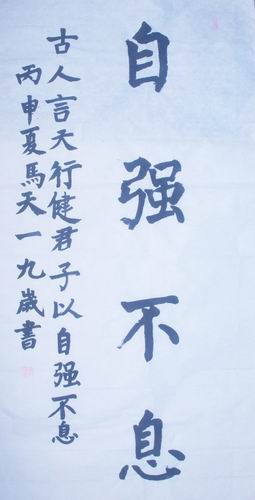 自强不息
古人言天行健君子以自强不息
丙申夏馬天一九歲書